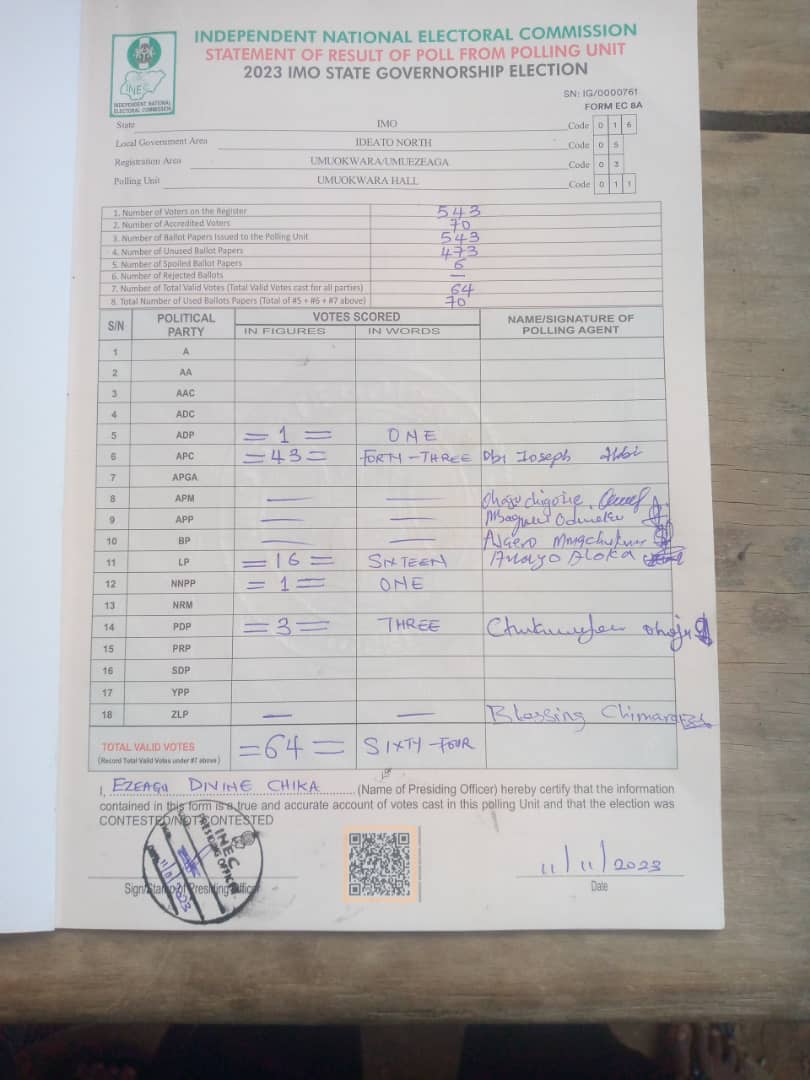 INDEPENDENT NATIONAL ELECTORAL COMMISSION
STATEMENT OF RESULT OF POLL FROM POLLING UNIT
2023 IMO STATE GOVERNORSHIP ELECTION
INEC
INDEPENDENT NATIONAL
ELECTORAL COMMISSION
SN: IG/0000761
FORM EC 8A
State IMO Code 0 1 6
Local Government Area IDEATO NORTH Code 0 5
Registration Area UMUOKWARA/UMUEZEAGA Code 0 3
Polling Unit UMUOKWARA HALL Code 0 1 1
1. Number of Voters on the Register 543
2. Number of Accredited Voters 70
3. Number of Ballot Papers Issued to the Polling Unit 543
4. Number of Unused Ballot Papers 473
5. Number of Spoiled Ballot Papers 6
6. Number of Rejected Ballots —
7. Number of Total Valid Votes (Total Valid Votes cast for all parties) 64
8. Total Number of Used Ballots Papers (Total of #5 + #6 + #7 above) 70
S/N POLITICAL PARTY VOTES SCORED NAME/SIGNATURE OF POLLING AGENT
IN FIGURES IN WORDS
1 A
2 AA
3 AAC
4 ADC
5 ADP =1= ONE
6 APC =43= FORTY-THREE Joseph
7 APGA
8 APM — —
9 APP — —
10 BP — —
11 LP =16= SIXTEEN Anayo Aloka
12 NNPP =1= ONE
13 NRM
14 PDP =3= THREE
15 PRP
16 SDP
17 YPP
18 ZLP — — Blessing
TOTAL VALID VOTES =64= SIXTY-FOUR
(Record Total Valid Votes under #7 above)
I, EZEAGU DIVINE CHIKA (Name of Presiding Officer) hereby certify that the information
contained in this form is a true and accurate account of votes cast in this polling Unit and that the election was
CONTESTED/NOT CONTESTED
INEC
PRESIDING OFFICER
Sign/Stamp of Presiding Officer
11/11/2023
Date